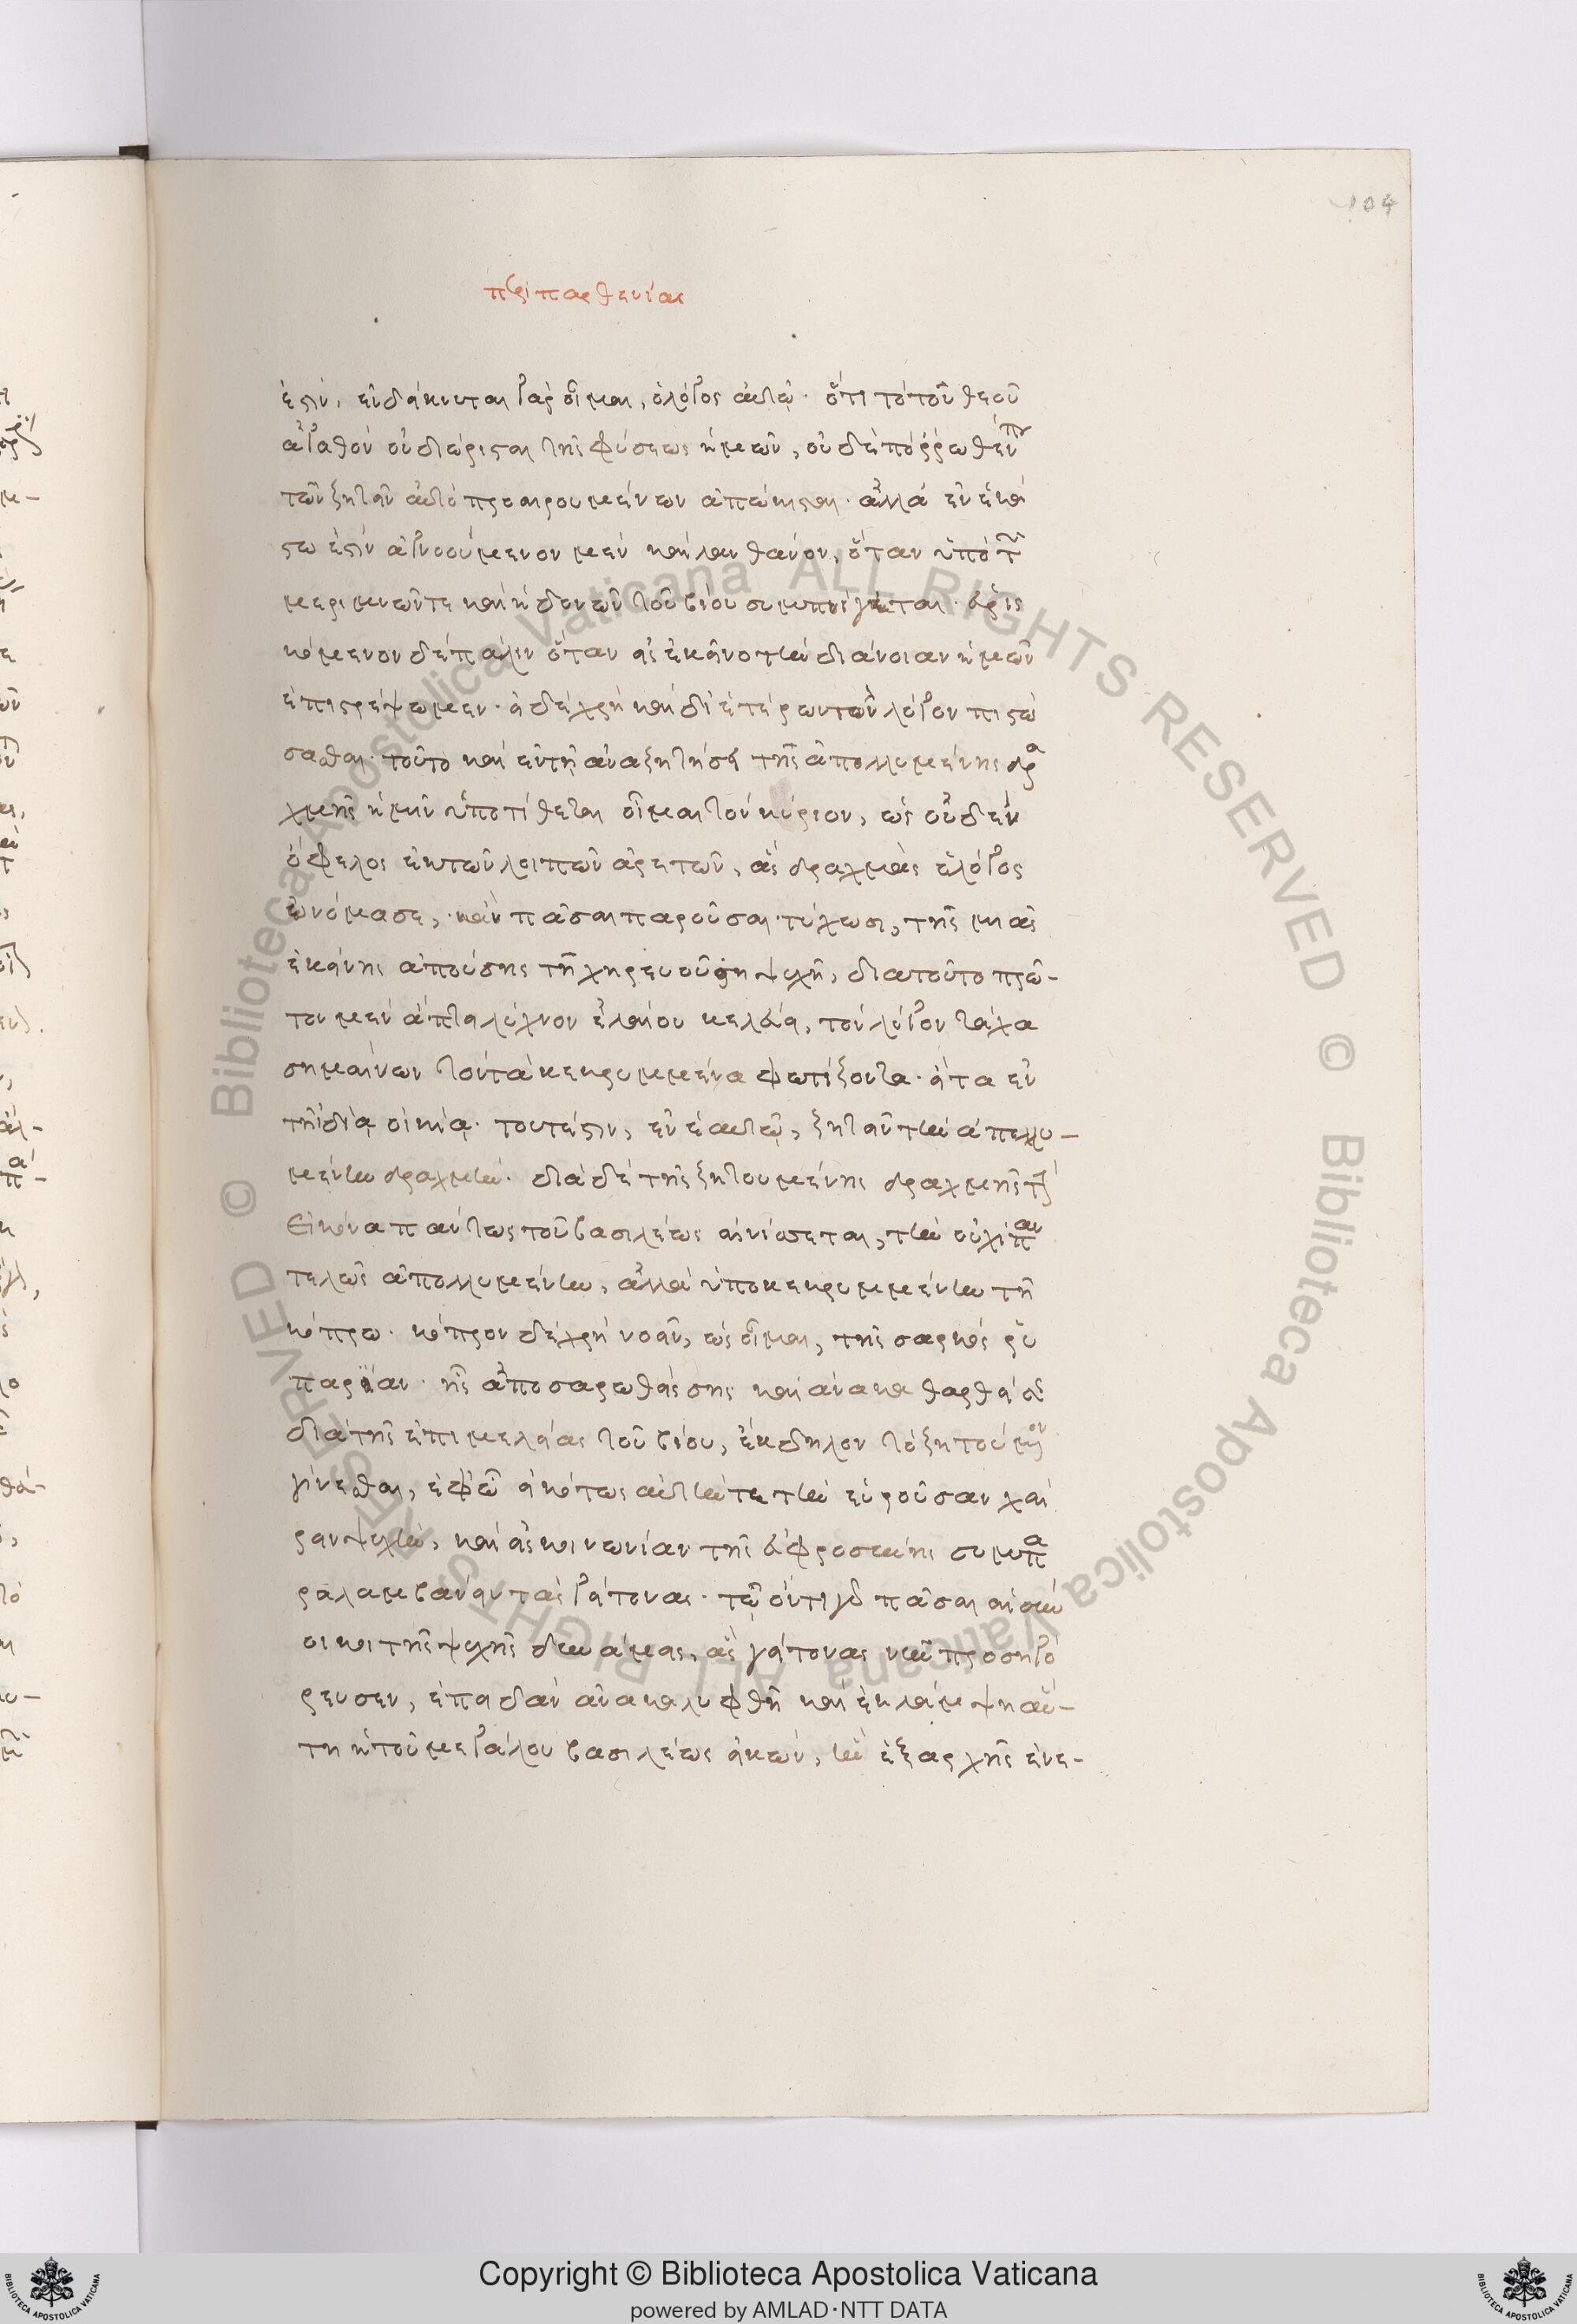 104
περὶ παρθενίας
ἐστιν, ἐνδείκνυται γὰρ οἶμαι, ὁ λόγος αὐτῷ· ὅτι τὸ τοῦ θεοῦ
ἀγαθὸν οὐ διώρισται τῆς φύσεως ἡμῶν, οὐδὲ πόρρωθέν που
τῶν ζητεῖν αὐτὸ προαιρουμένων ἀπῴκισται· ἀλλὰ ἐν ἑκά
στω ἐστὶν ἀγνοούμενον μὲν καὶ λανθάνον, ὅταν ὑπὸ τῶν
μεριμνῶν τε καὶ ἡδονῶν τοῦ βίου συμπνίγηται· εὑρις
κόμενον δὲ πάλιν ὅταν εἰς ἐκεῖνο τὴν διάνοιαν ἡμῶν
ἐπιστρέψωμεν· εἰ δὲ χρὴ καὶ δι' ἑτέρων τὸν λόγον πιστώ
σασθαι· τοῦτο καὶ ἐν τῇ ἀναζητήσει τῆς ἀπολλυμένης δρα
χμῆς ἡμῖν ὑποτίθεται οἶμαι τὸν κύριον, ὡς οὐδὲν
ὄφελος ἐκ τῶν λοιπῶν ἀρετῶν, ἃς δραχμὰς ὁ λόγος
ὠνόμασε, κἂν πᾶσαι παροῦσαι τύχωσι, τῆς μιᾶς
ἐκείνης ἀπούσης τῇ χηρευούσῃ ψυχῇ, διατοῦτο πρῶ-
τον μὲν ἅπτει λύχνον ἐλαίου κελεύει, τὸν λόγον τάχα
σημαίνων τὸν τὰ κεκρυμμένα φωτίζοντα· εἶτα ἐν
τῇ ἰδίᾳ οἰκίᾳ· τουτέστιν, ἐν ἑαυτῷ, ζητεῖν τὴν ἀπολλυ-
μένην δραχμήν· διὰ δὲ τῆς ζητουμένης δραχμῆς τὴν
εἰκόνα πάντως τοῦ βασιλέως αἰνίσσεται, τὴν οὐχὶ παν
τελῶς ἀπολλυμένην, ἀλλὰ ὑποκεκρυμμένην τῇ
κόπρω· κόπρον δὲ χρὴ νοεῖν, ὡς οἶμαι, τῆς σαρκὸς ῥυ
παρίαν· ἧς ἀποσαρωθείσης καὶ ἀνακαθαρθείσης
διὰ τῆς ἐπιμελείας τοῦ βίου, ἔκδηλον τὸ ζητούμενον
γίνεσθαι, ἐφ' ᾧ εἰκότως αὐτήν τε τὴν εὑροῦσαν χαί
ρειν ψυχήν, καὶ εἰς κοινωνίαν τῆς εὐφροσύνης συμπα
ραλαμβάνειν τὰς γείτονας· τῷ ὄντι γὰρ πᾶσαι αἱ σύν
οικοι τῆς ψυχῆς δυνάμεις, ἃς γείτονας νῦν προσηγό
ρευσεν, ἐπειδὰν ἀνακαλυφθῇ καὶ ἐκλάμψῃ αὐ-
τη ἡ τοῦ μεγάλου βασιλέως εἰκών, ἣν ἐξ ἀρχῆς ἐνε-
Copyright © Biblioteca Apostolica Vaticana
powered by AMLAD·NTT DATA